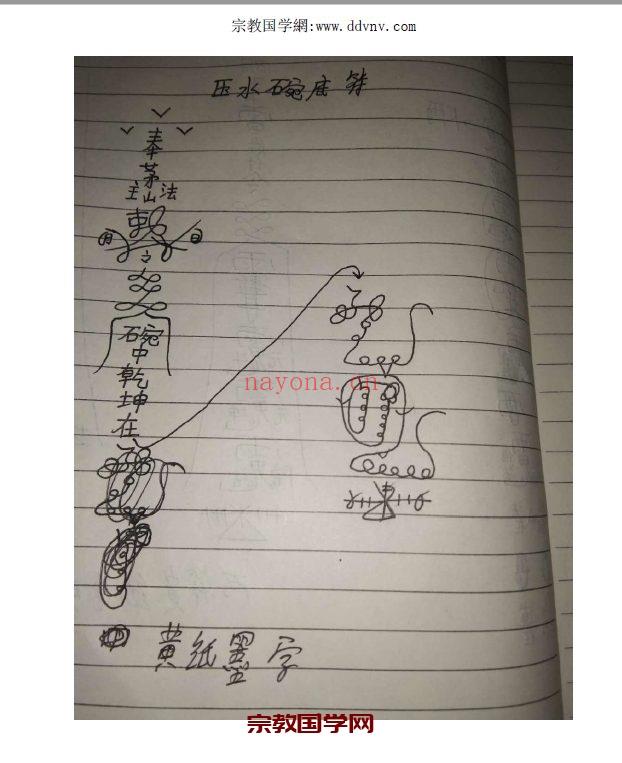 宗教国学網:www.ddvnv.com
压水碗底符
奉
茅
主山法
敕
月 日
之
碗
中
乾
坤
在
nayona.cn
黄纸墨字
宗教国学网